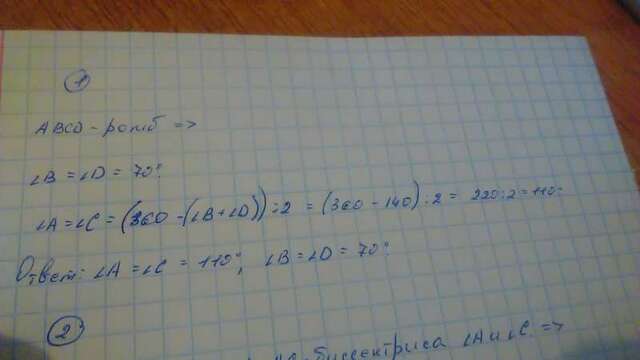 1
ABCD - ромб =>
∠B = ∠D = 70°.
∠A = ∠C = (360 - (∠B + ∠D)) : 2 = (360 - 140) : 2 = 220 : 2 = 110°
Ответ: ∠A = ∠C = 110°, ∠B = ∠D = 70°.
2
биссектриса ∠A и ∠C =>